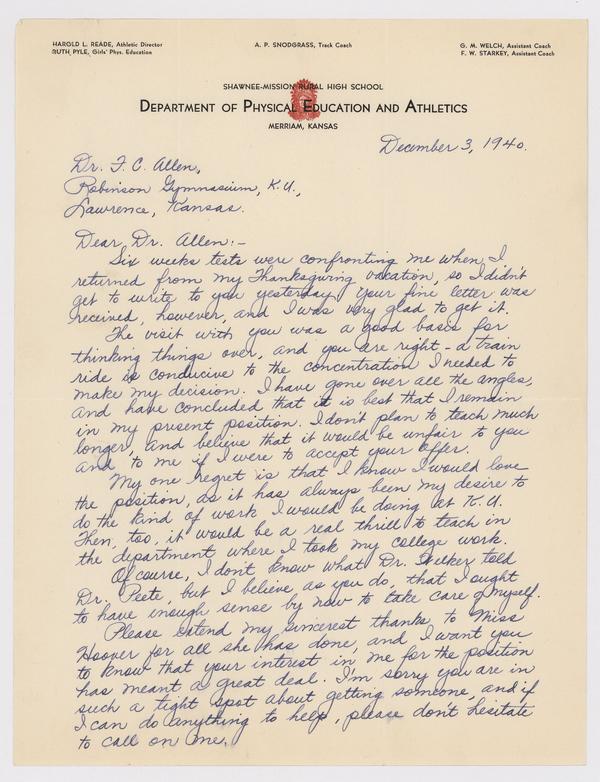 HAROLD L. READE, Athletic Director
RUTH PYLE, Girls' Phys. Education
A. P. SNODGRASS, Track Coach
G. M. WELCH, Assistant Coach
F. W. STARKEY, Assistant Coach
SHAWNEE-MISSION RURAL HIGH SCHOOL
DEPARTMENT OF PHYSICAL EDUCATION AND ATHLETICS
MERRIAM, KANSAS
December 3, 1940.
Dr. F. C. Allen,
Robinson Gymnasium, K.U.,
Lawrence, Kansas.
Dear Dr. Allen:-
Six weeks tests were confronting me when I
returned from my Thanksgiving vacation, so I didn't
get to write to you yesterday. Your fine letter was
received, however, and I was very glad to get it.
The visit with you was a good basis for
thinking things over, and you are right - a train
ride is conducive to the concentration I needed to
make my decision. I have gone over all the angles,
and have concluded that it is best that I remain
in my present position. I don't plan to teach much
longer, and believe that it would be unfair to you
and to me if I were to accept your offer.
My one regret is that I know I would love
the position, as it has always been my desire to
do the kind of work I would be doing at K.U.
Then, too, it would be a real thrill to teach in
the department where I took my college work.
Of course, I don't know what Dr. told
Dr. Peete, but I believe, as you do, that I ought
to have enough sense by now to take care of myself.
Please extend my sincerest thanks to Miss
Hoover for all she has done, and I want you
to know that your interest in me for the position
has meant a great deal. I'm sorry you are in
such a tight spot about getting someone, and if
I can do anything to help, please don't hesitate
to call on me.